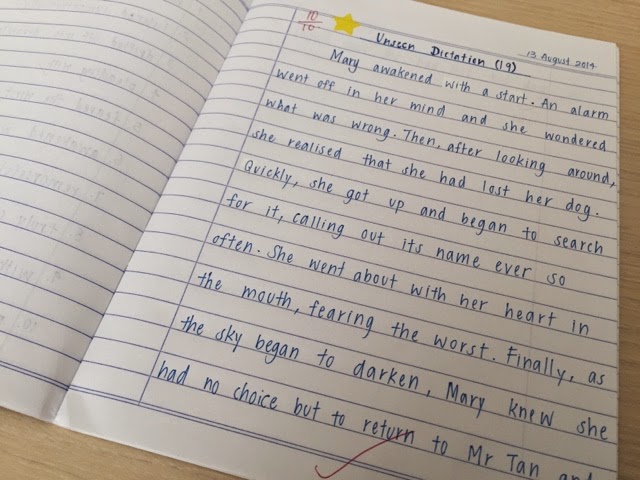 10
10
Unseen Dictation (19)
13 August 2014
Mary awakened with a start. An alarm
went off in her mind and she wondered
what was wrong. Then, after looking around,
she realised that she had lost her dog.
Quickly, she got up and began to search
for it, calling out its name ever so
often. She went about with her heart in
the mouth, fearing the worst. Finally, as
the sky began to darken, Mary knew she
had no choice but to return to Mr Tan and